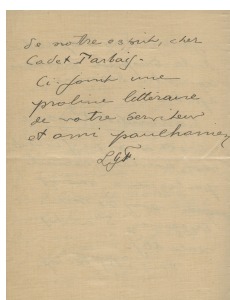 de notre esprit, cher
Cadet Tarbaig.
Ci-joint une
praline littéraire
de votre serviteur
et ami
L.G.F.